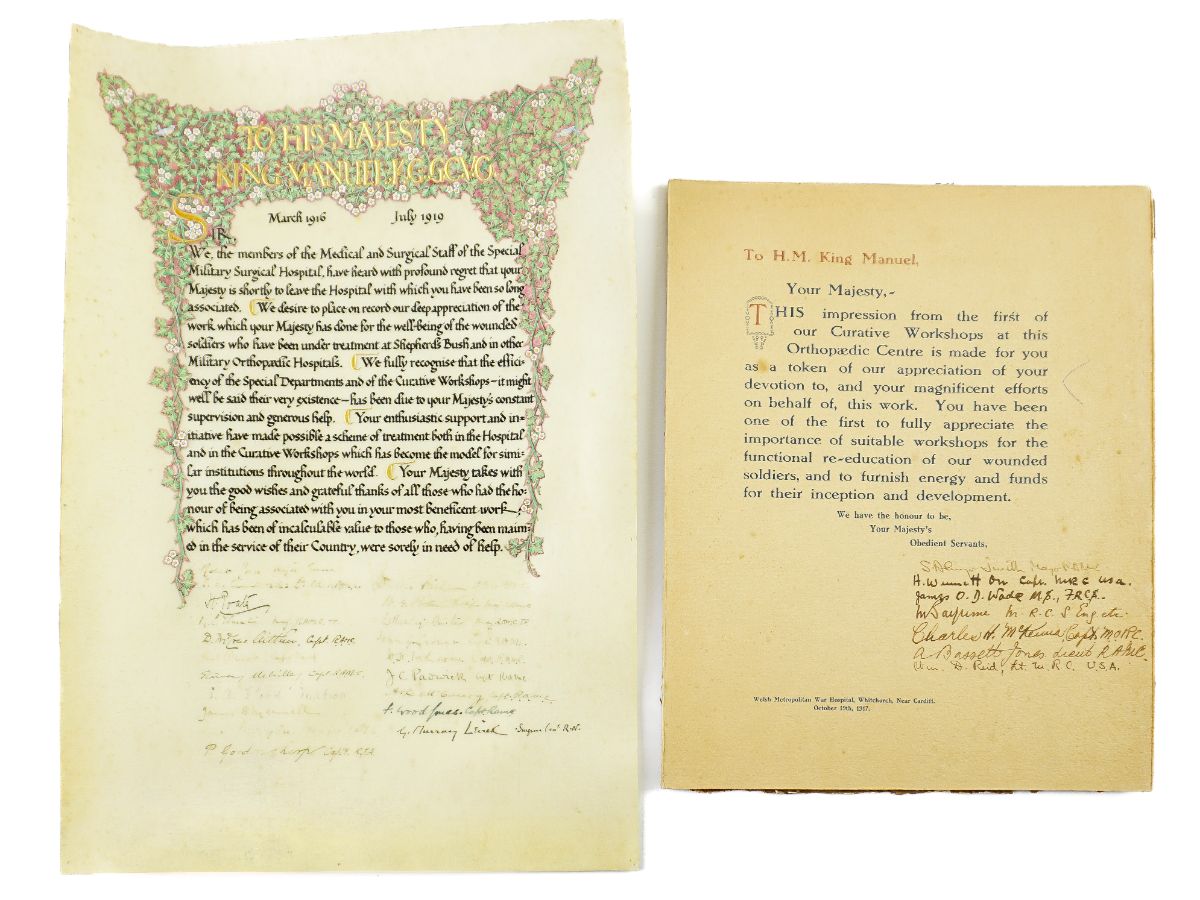 TO HIS MAJESTY
KING MANUEL K.G. G.C.V.O.
March 1916 July 1919
SIR,
We, the members of the Medical and Surgical Staff of the Special
Military Surgical Hospital, have heard with profound regret that your
Majesty is shortly to leave the Hospital with which you have been so long
associated. We desire to place on record our deep appreciation of the
work which your Majesty has done for the well-being of the wounded
soldiers who have been under treatment at Shepherd's Bush and in other
Military Orthopædic Hospitals. We fully recognise that the effici-
ency of the Special Departments and of the Curative Workshops – it might
well be said their very existence – has been due to your Majesty's constant
supervision and generous help. Your enthusiastic support and in-
itiative have made possible a scheme of treatment both in the Hospital
and in the Curative Workshops which has become the model for simi-
lar institutions throughout the world. Your Majesty takes with
you the good wishes and grateful thanks of all those who had the ho-
nour of being associated with you in your most beneficent work,
which has been of incalculable value to those who, having been maim-
ed in the service of their Country, were sorely in need of help.
Capt. RAMC
J.C. Padwick Capt RAMC
F. Wood Jones. Capt RAMC
G. Murray Levick Surgeon R.N.
P. Gordon
To H.M. King Manuel,
Your Majesty,-
THIS impression from the first of
our Curative Workshops at this
Orthopædic Centre is made for you
as a token of our appreciation of your
devotion to, and your magnificent efforts
on behalf of, this work. You have been
one of the first to fully appreciate the
importance of suitable workshops for the
functional re-education of our wounded
soldiers, and to furnish energy and funds
for their inception and development.
We have the honour to be,
Your Majesty's
Obedient Servants,
Smith Major
H. Winnett Orr Capt. MRC USA.
James O. D. Wade M.S., FRCS.
M. R. C. S Eng etc.
Charles H. McKenna, Capt. M.O.R.C.
A. Bassett Jones Lieut R.A.M.C.
Wm. D. Reid, Lt. M.R.C. U.S.A.
Welsh Metropolitan War Hospital, Whitchurch, Near Cardiff.
October 19th, 1917.